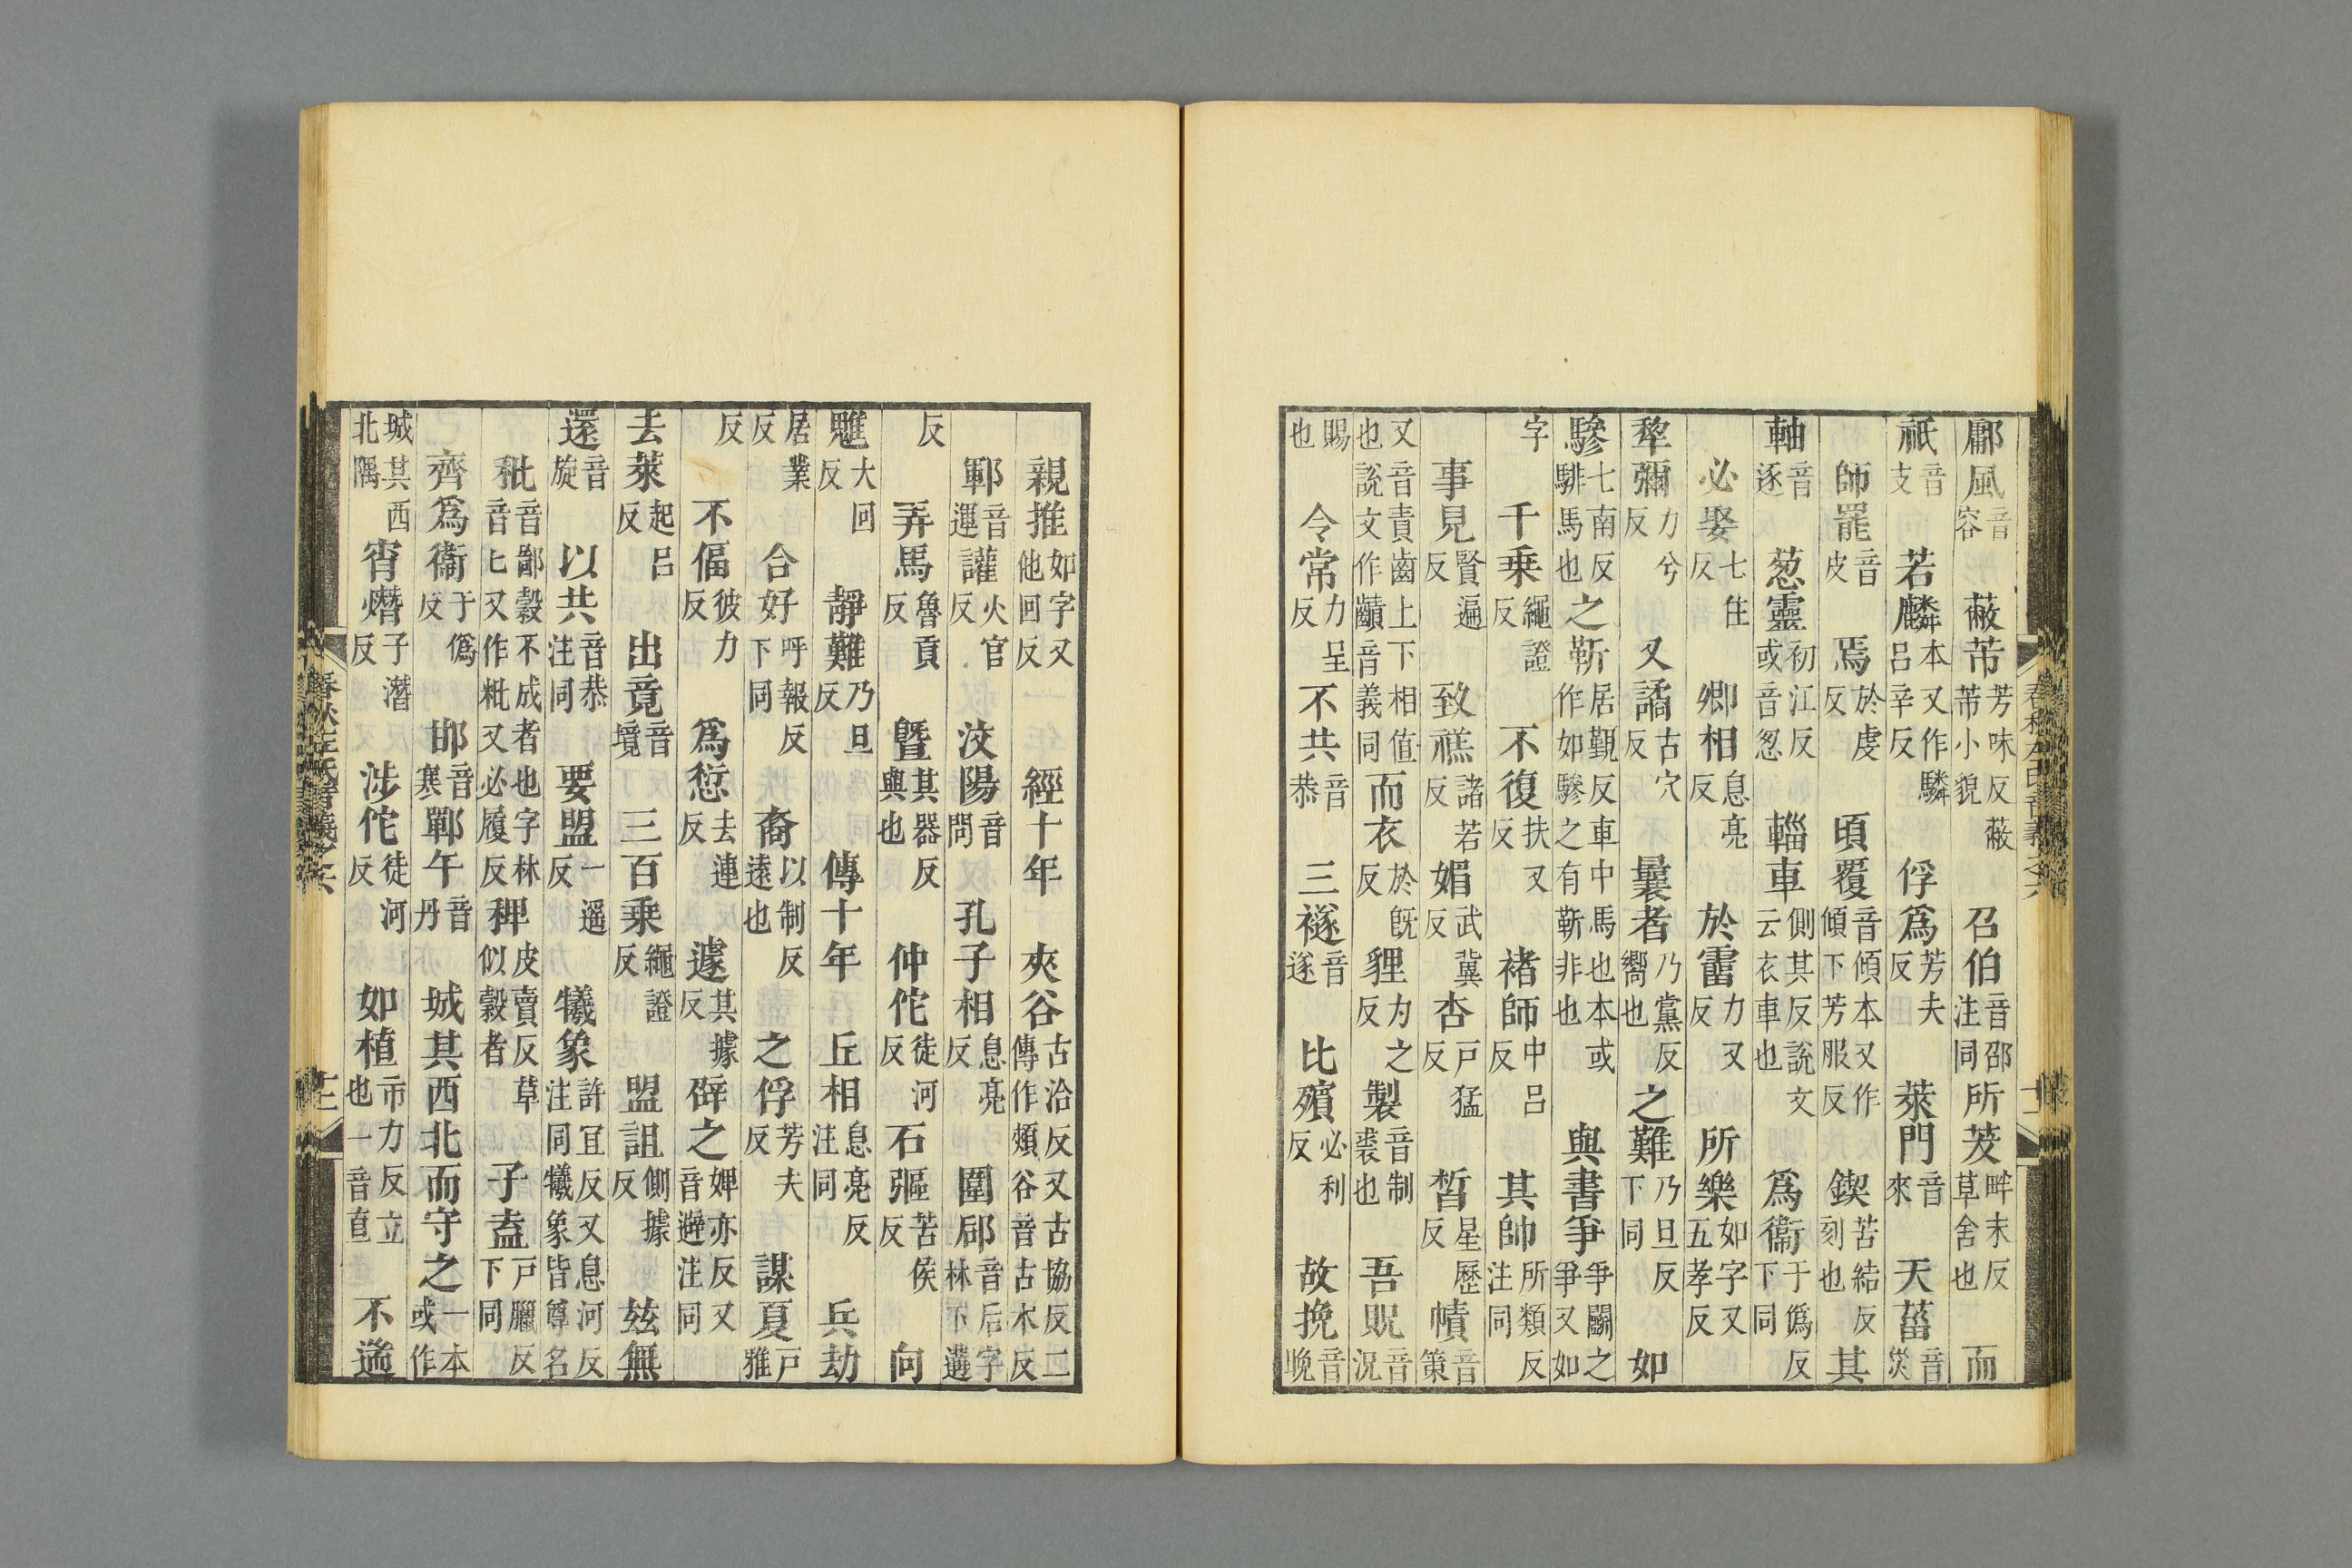 鄘風音容 蔽芾芳味反蔽芾小貌 召伯音邵注同 所茇畔末反草舍也 而
祇音支 若麟本又作驎呂辛反 俘爲芳夫反 萊門音來 天菑音災
師罷音皮 焉於虔反 頃覆音傾本又作傾下芳服反 鍥苦結反刻也 其
軸音逐 葱靈初江反或音忽 輜車側其反說文云衣車也 爲衞于僞反下同
必娶七住反 卿相息亮反 於霤力又反 所樂如字又五孝反
犂彌力兮反 又譎古穴反 曩者乃黨反嚮也 之難乃旦反下同 如
驂七南反騑馬也 之靳居覲反車中馬也本或作如驂之有靳非也 與書爭爭鬭之爭又如
字 千乘繩證反 不復扶又反 褚師中呂反 其帥所類反注同
事見賢遍反 致禚諸若反 媚武冀反 杏戸猛反 皙星歷反 幘音策
又音責齒上下相值也說文作䶦音義同 而衣於旣反 貍力之反 製音制裘也 吾貺音況
賜也 令常力呈反 不共音恭 三襚音遂 比殯必利反 故挽音晚
親推如字又他回反 經十年 夾谷古洽反又古協反二傳作頰谷音古木反
鄆音運 讙火官反 汶陽音問 孔子相息亮反 圍郈音后字林下遘
反 弄馬魯貢反 曁其器反與也 仲佗徒河反 石彄苦侯反 向
魋大回反 靜難乃旦反 傳十年 丘相息亮反注同 兵劫
居業反 合好呼報反下同 裔以制反遠也 之俘芳夫反 謀夏戸雅
反 不偪彼力反 爲愆去連反 遽其據反 辟之婢亦反又音避注同
去萊起呂反 出竟音境 三百乘繩證反 盟詛側據反 兹無
還音旋 以共音恭注同 要盟一遥反 犧象許宜反又息河反注同犧象皆尊名
秕音鄙穀不成者也字林音匕又作粃又必履反 稗皮賣反草似穀者 子盍戸臘反下同
齊爲衞于僞反 邯音寒 鄲午音丹 城其西北而守之一本或作
城其西北隅 宵熸子潛反 涉佗徒河反 如植市力反立也一音直 不遄
春秋左氏音義之六 十二